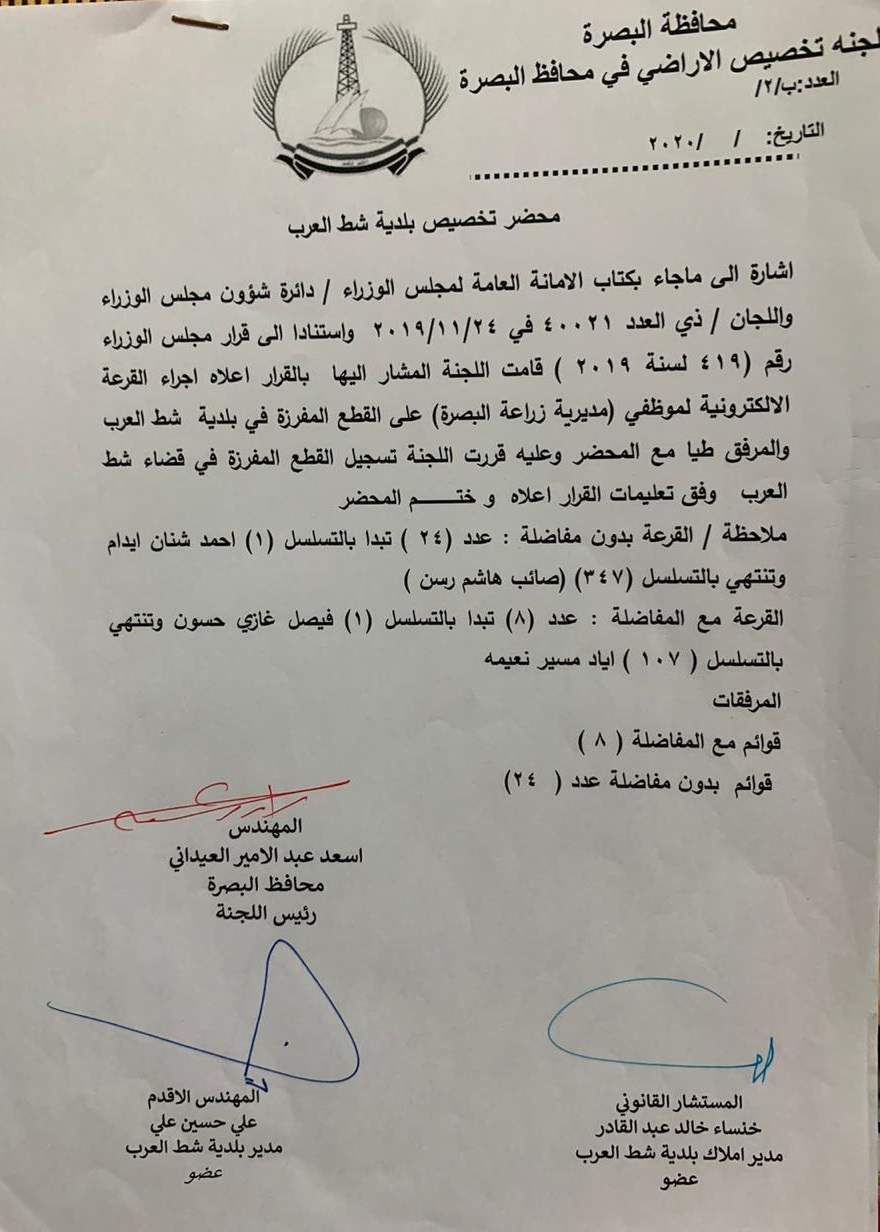 محافظة البصرة
لجنه تخصيص الاراضي في محافظ البصرة
العدد:ب/٢/
التاريخ: / /٢٠٢٠
محضر تخصيص بلدية شط العرب
اشارة الى ماجاء بكتاب الامانة العامة لمجلس الوزراء / دائرة شؤون مجلس الوزراء
واللجان / ذي العدد ٤٠٠٢١ في ٢٠١٩/١١/٢٤ واستنادا الى قرار مجلس الوزراء
رقم (٤١٩ لسنة ٢٠١٩ ) قامت اللجنة المشار اليها بالقرار اعلاه اجراء القرعة
الالكترونية لموظفي (مديرية زراعة البصرة) على القطع المفرزة في بلدية شط العرب
والمرفق طيا مع المحضر وعليه قررت اللجنة تسجيل القطع المفرزة في قضاء شط
العرب وفق تعليمات القرار اعلاه و ختـــــم المحضر
ملاحظة / القرعة بدون مفاضلة : عدد (٢٤ ) تبدا بالتسلسل (١) احمد شنان ايدام
وتنتهي بالتسلسل (٣٤٧) (صائب هاشم رسن )
القرعة مع المفاضلة : عدد (٨) تبدا بالتسلسل (١) فيصل غازي حسون وتنتهي
بالتسلسل ( ١٠٧ ) اياد مسير نعيمه
المرفقات
قوائم مع المفاضلة ( ٨ )
قوائم بدون مفاضلة عدد ( ٢٤)
المهندس
اسعد عبد الامير العيداني
محافظ البصرة
رئيس اللجنة
المستشار القانوني
خنساء خالد عبد القادر
مدير املاك بلدية شط العرب
عضو
المهندس الاقدم
علي حسين علي
مدير بلدية شط العرب
عضو